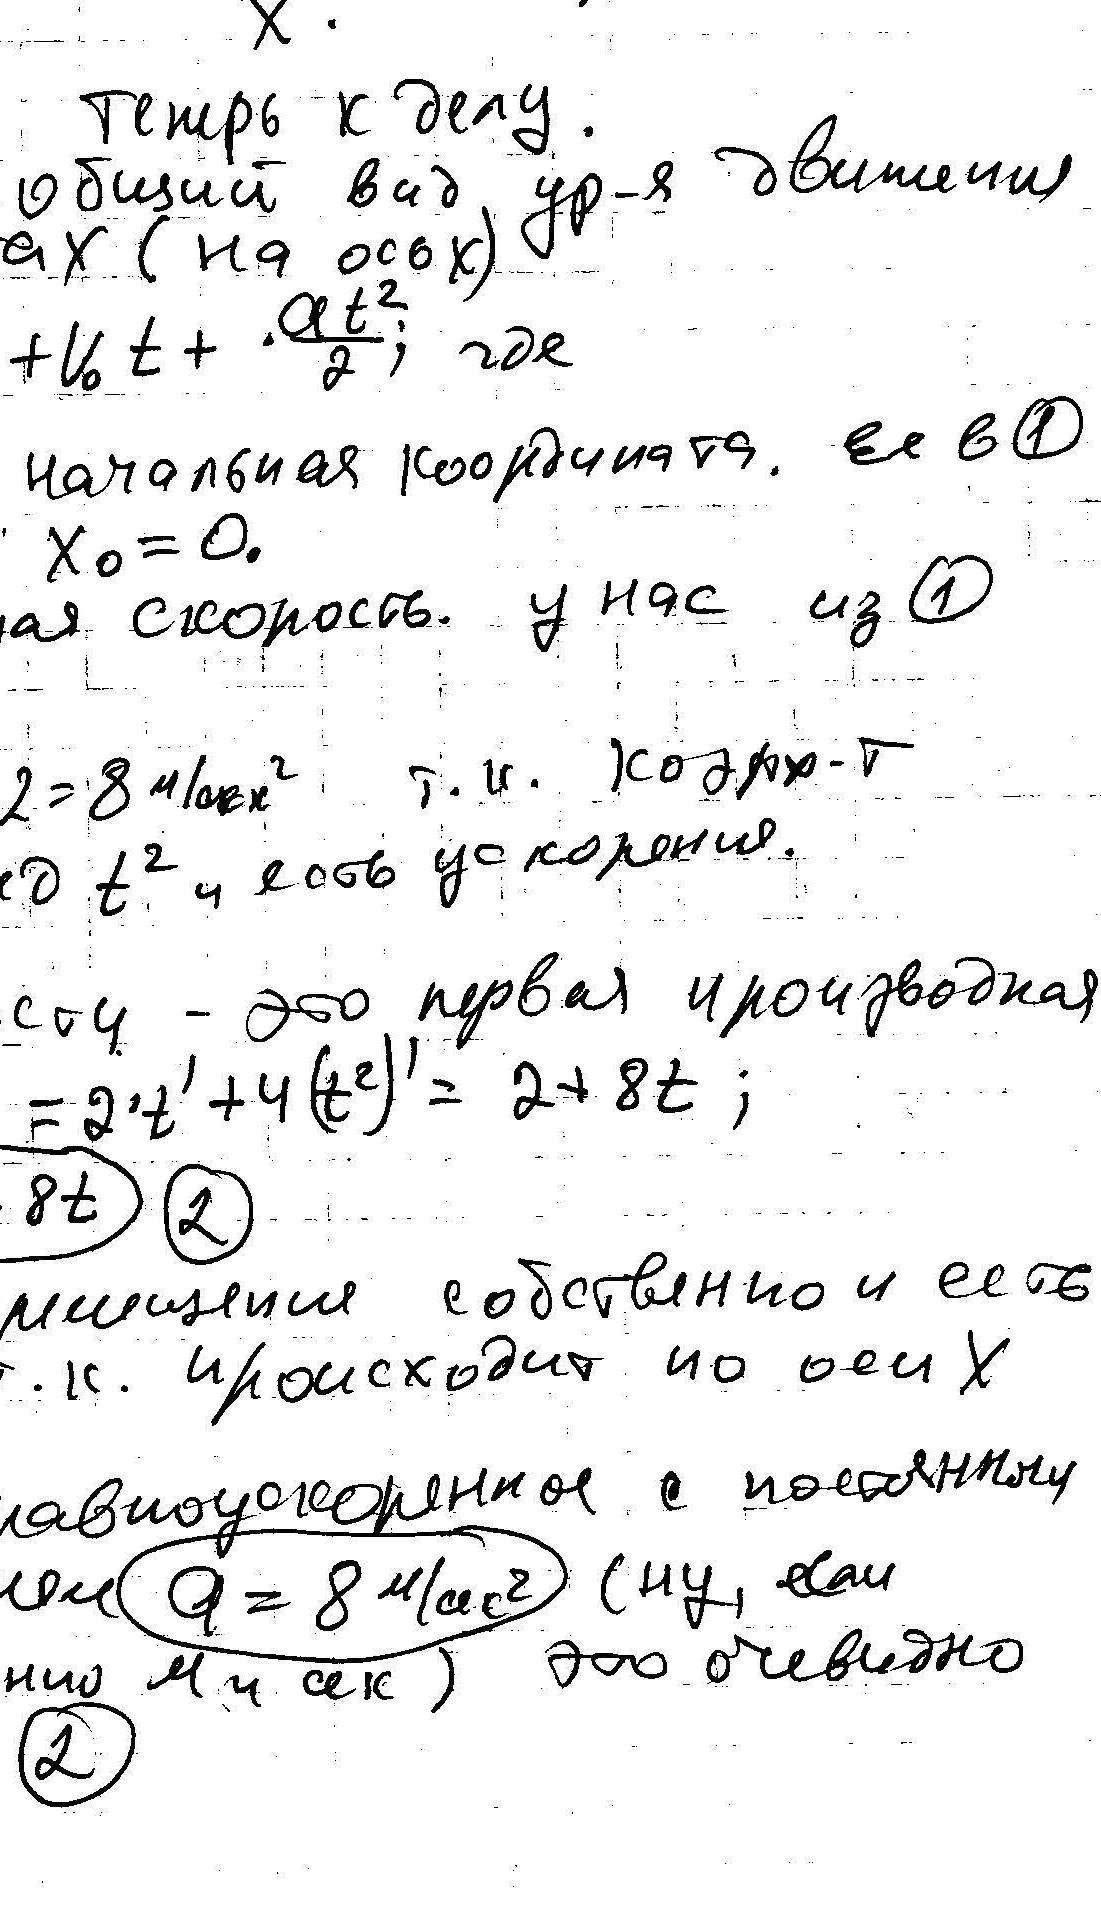 X .
Теперь к делу.
Общий вид ур-я движения
X (на ось X)
+ V₀ t + at²/2; где
начальная координата. Ее в ①
X₀ = 0.
ая скорость. У нас из ①
2 = 8 м/сек² т.к. коэфф-т
ед t² и есть ускорения.
сти - это первая производная
= 2·t' + 4(t²)' = 2 + 8t ;
8t ②
мещение собственно и есть
т.к. происходит по оси X
равноускоренное с постоянным
ием a = 8 м/сек² (ну, если
нно м и сек) это очевидно
②